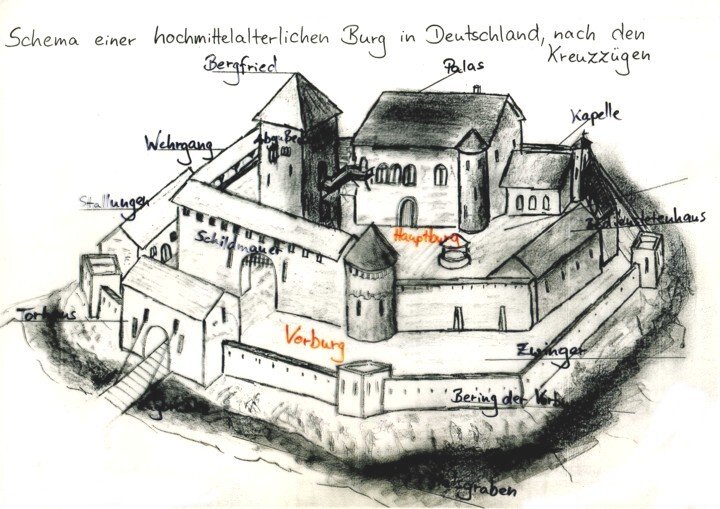 Schema einer hochmittelalterlichen Burg in Deutschland, nach den
Kreuzzügen
Bergfried
Palas
Kapelle
Wehrgang
Stallungen
Schildmauer
Hauptburg
Torhaus
Vorburg
Zwinger
Bering der
graben